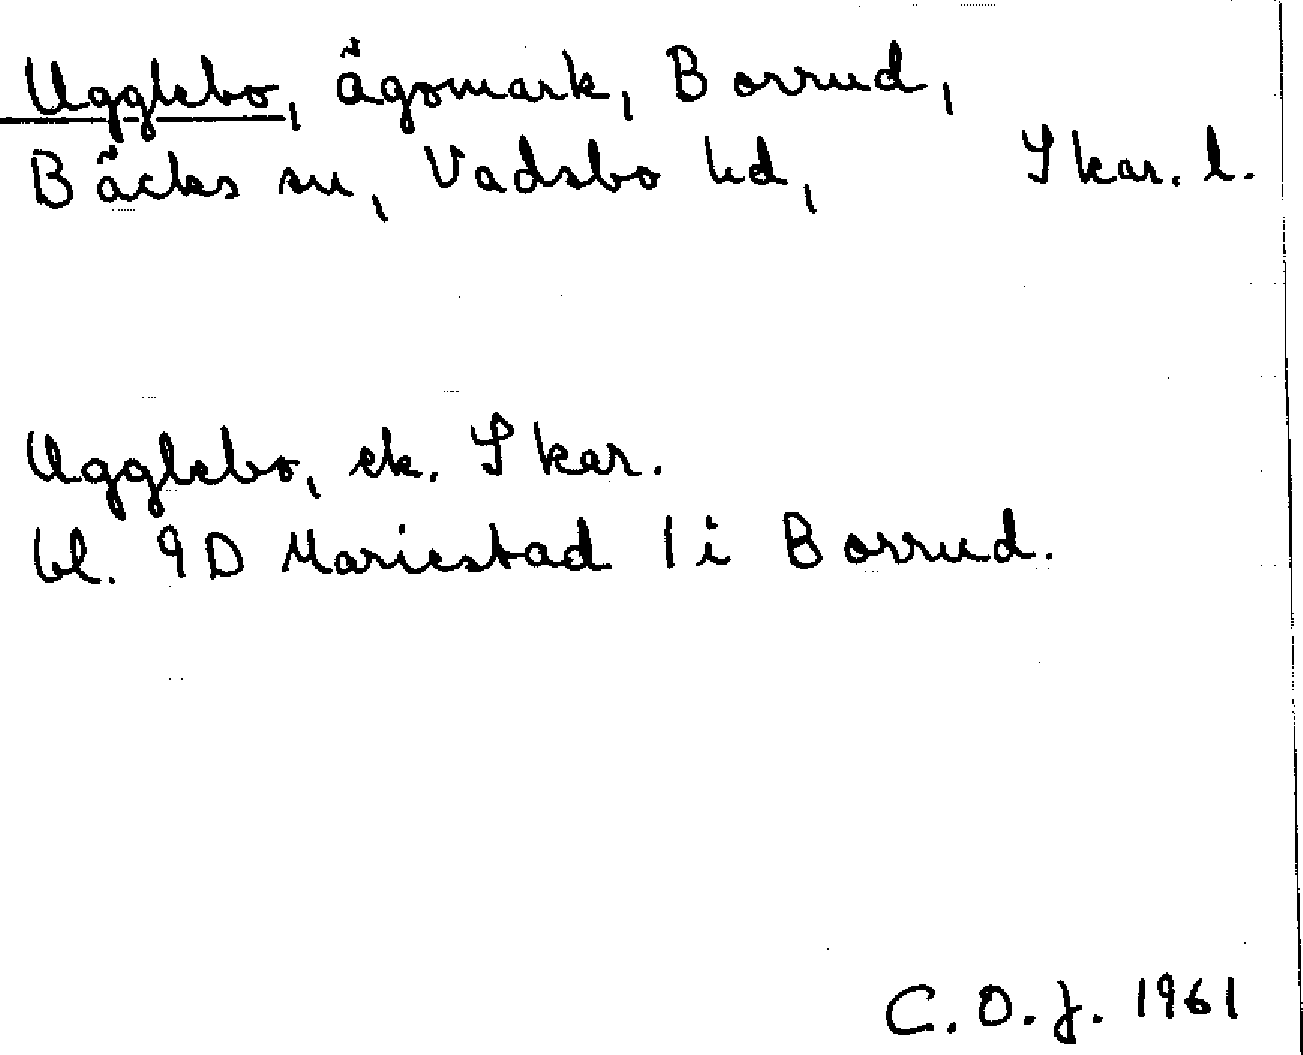 Ugglebo, ägomark, Borrud,
Bäcks sn, Vadsbo hd, Skar. l.
Ugglebo, ek. Skar.
bl. 9D Mariestad 1 i Borrud.
C.O.J. 1961